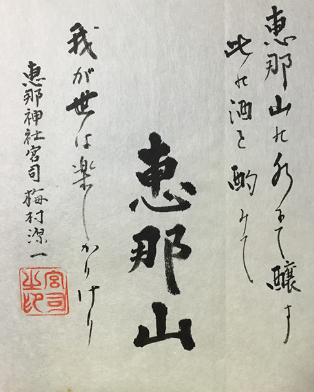 恵那山の水にて醸す
此の酒を酌みて
恵那山
我が世は楽しかりけり
恵那神社宮司 梅村源一
宮司之印